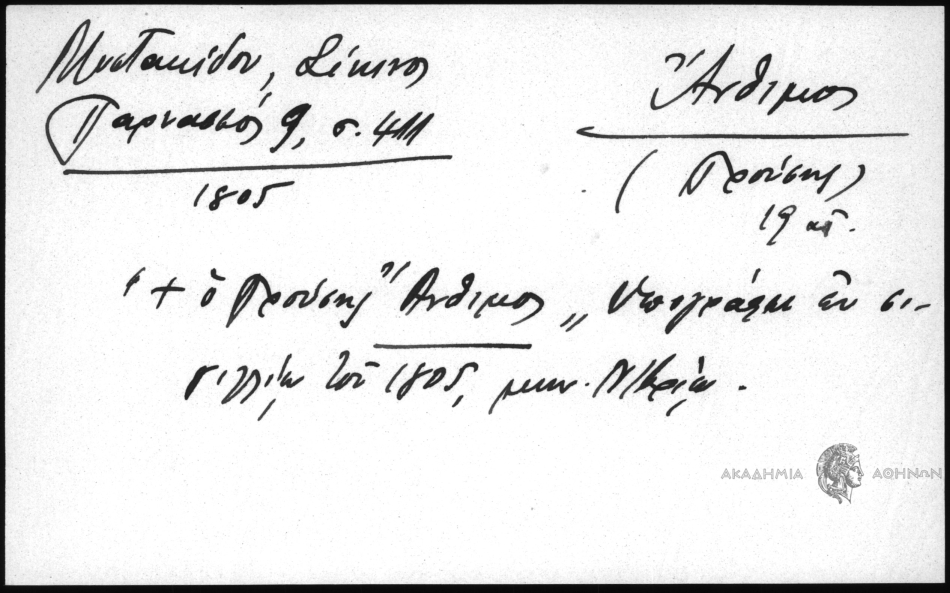 Μυστακίδου, Σίκινος
Παρνασσός 9, σ. 411
1805
Ἄνθιμος
(Προύσης)
19 αἰ.
"+ ὁ Προύσης Ἄνθιμος„ ὑπογράφει ἐν σι-
γιλλίῳ τοῦ 1805, μην. Νβρίῳ.
ΑΚΑΔΗΜΙΑ ΑΘΗΝΩΝ